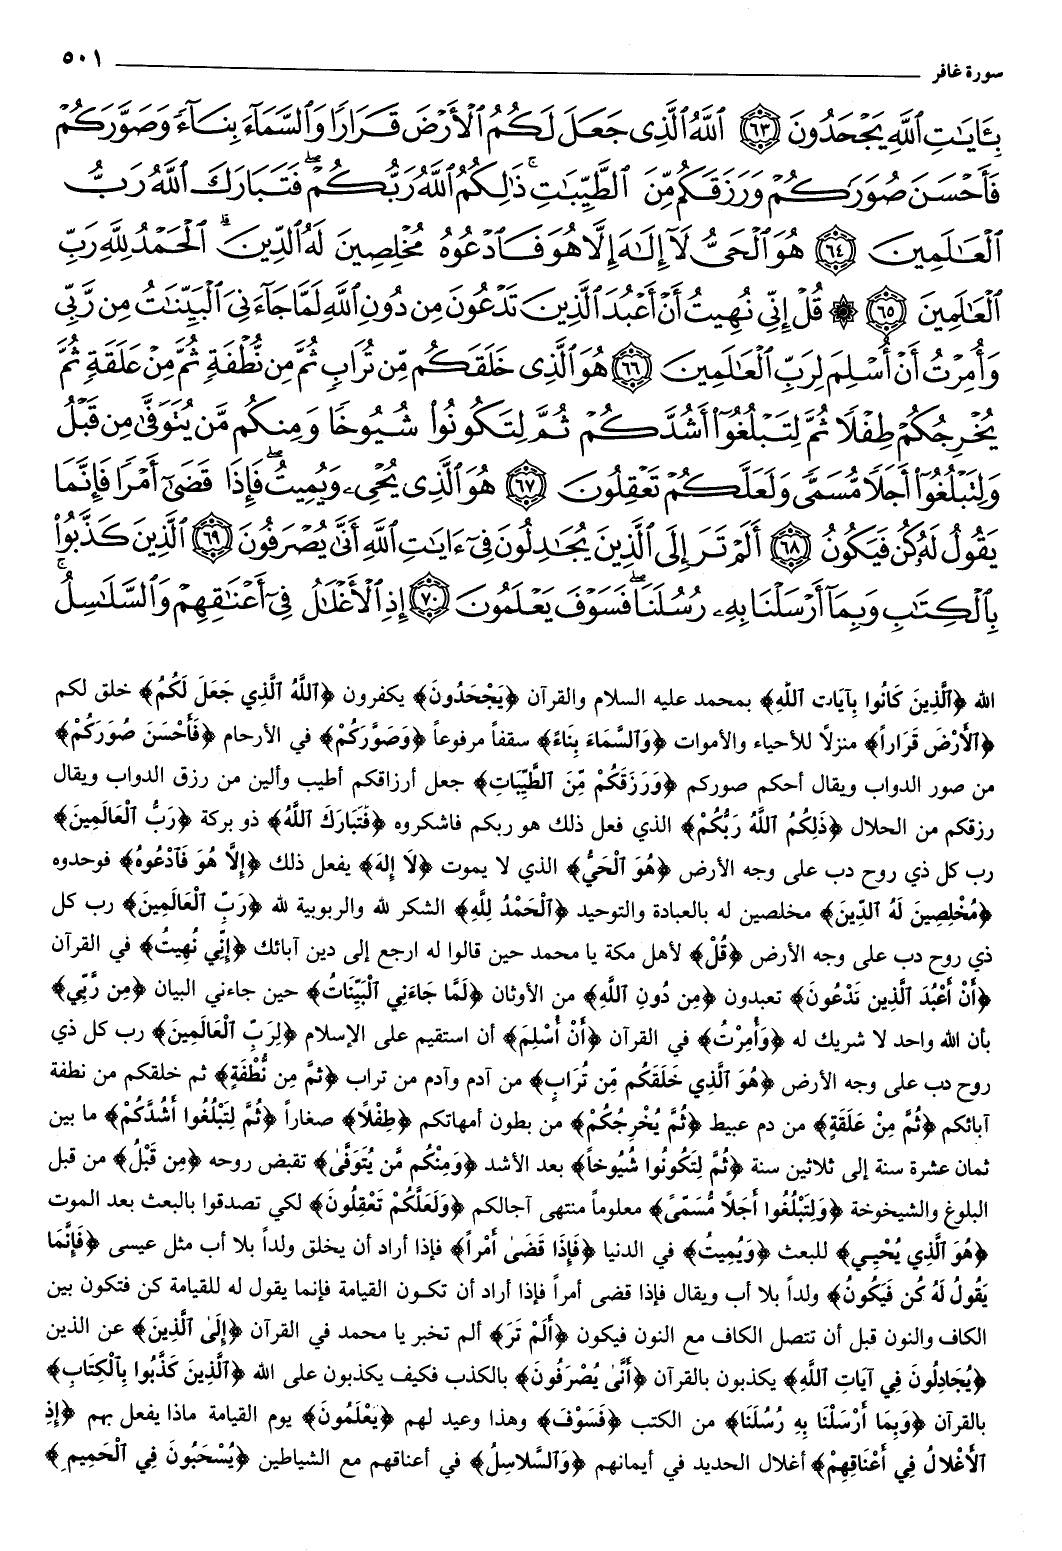 سورة غافر ٥٠١
بِـَٔايَٰتِ ٱللَّهِ يَجۡحَدُونَ ٦٣ ٱللَّهُ ٱلَّذِي جَعَلَ لَكُمُ ٱلۡأَرۡضَ قَرَارٗا وَٱلسَّمَآءَ بِنَآءٗ وَصَوَّرَكُمۡ
فَأَحۡسَنَ صُوَرَكُمۡ وَرَزَقَكُم مِّنَ ٱلطَّيِّبَٰتِۚ ذَٰلِكُمُ ٱللَّهُ رَبُّكُمۡۖ فَتَبَارَكَ ٱللَّهُ رَبُّ
ٱلۡعَٰلَمِينَ ٦٤ هُوَ ٱلۡحَيُّ لَآ إِلَٰهَ إِلَّا هُوَ فَٱدۡعُوهُ مُخۡلِصِينَ لَهُ ٱلدِّينَۗ ٱلۡحَمۡدُ لِلَّهِ رَبِّ
ٱلۡعَٰلَمِينَ ٦٥ ۞ قُلۡ إِنِّي نُهِيتُ أَنۡ أَعۡبُدَ ٱلَّذِينَ تَدۡعُونَ مِن دُونِ ٱللَّهِ لَمَّا جَآءَنِيَ ٱلۡبَيِّنَٰتُ مِن رَّبِّي
وَأُمِرۡتُ أَنۡ أُسۡلِمَ لِرَبِّ ٱلۡعَٰلَمِينَ ٦٦ هُوَ ٱلَّذِي خَلَقَكُم مِّن تُرَابٖ ثُمَّ مِن نُّطۡفَةٖ ثُمَّ مِنۡ عَلَقَةٖ ثُمَّ
يُخۡرِجُكُمۡ طِفۡلٗا ثُمَّ لِتَبۡلُغُوٓاْ أَشُدَّكُمۡ ثُمَّ لِتَكُونُواْ شُيُوخٗا وَمِنكُم مَّن يُتَوَفَّىٰ مِن قَبۡلُ
وَلِتَبۡلُغُوٓاْ أَجَلٗا مُّسَمّٗى وَلَعَلَّكُمۡ تَعۡقِلُونَ ٦٧ هُوَ ٱلَّذِي يُحۡيِۦ وَيُمِيتُۖ فَإِذَا قَضَىٰٓ أَمۡرٗا فَإِنَّمَا
يَقُولُ لَهُۥ كُن فَيَكُونُ ٦٨ أَلَمۡ تَرَ إِلَى ٱلَّذِينَ يُجَٰدِلُونَ فِيٓ ءَايَٰتِ ٱللَّهِ أَنَّىٰ يُصۡرَفُونَ ٦٩ ٱلَّذِينَ كَذَّبُواْ
بِٱلۡكِتَٰبِ وَبِمَآ أَرۡسَلۡنَا بِهِۦ رُسُلَنَاۖ فَسَوۡفَ يَعۡلَمُونَ ٧٠ إِذِ ٱلۡأَغۡلَٰلُ فِيٓ أَعۡنَٰقِهِمۡ وَٱلسَّلَٰسِلُ
الله ﴿ٱلَّذِينَ كَانُوا بِآيَات ٱللَّهِ﴾ بمحمد عليه السلام والقرآن ﴿يَجْحَدُونَ﴾ يكفرون ﴿ٱللَّهُ ٱلَّذِي جَعَلَ لَكُمُ﴾ خلق لكم
﴿ٱلأَرْضَ قَرَاراً﴾ منزلاً للأحياء والأموات ﴿وَٱلسَّمَاءَ بِنَاءً﴾ سقفاً مرفوعاً ﴿وَصَوَّرَكُمْ﴾ في الأرحام ﴿فَأَحْسَنَ صُوَرَكُمْ﴾
من صور الدواب ويقال أحكم صوركم ﴿وَرَزَقَكُمْ مِّنَ ٱلطَّيِّبَاتِ﴾ جعل أرزاقكم أطيب وألين من رزق الدواب ويقال
رزقكم من الحلال ﴿ذَلِكُمُ ٱللَّهُ رَبُّكُمْ﴾ الذي فعل ذلك هو ربكم فاشكروه ﴿فَتَبَارَكَ ٱللَّهُ﴾ ذو بركة ﴿رَبُّ ٱلْعَالَمِينَ﴾
رب كل ذي روح دب على وجه الأرض ﴿هُوَ ٱلْحَيُّ﴾ الذي لا يموت ﴿لاَ إِلهَ﴾ يفعل ذلك ﴿إِلَّا هُوَ فَٱدْعُوهُ﴾ فوحدوه
﴿مُخْلِصِينَ لَهُ ٱلدِّينَ﴾ مخلصين له بالعبادة والتوحيد ﴿ٱلْحَمْدُ لِلَّهِ﴾ الشكر لله والربوبية لله ﴿رَبِّ ٱلْعَالَمِينَ﴾ رب كل
ذي روح دب على وجه الأرض ﴿قُلْ﴾ لأهل مكة يا محمد حين قالوا له ارجع إلى دين آبائك ﴿إِنِّي نُهِيتُ﴾ في القرآن
﴿أَنْ أَعْبُدَ ٱلَّذِين تَدْعُونَ﴾ تعبدون ﴿مِن دُونِ ٱللَّهِ﴾ من الأوثان ﴿لَمَّا جَاءَنِي ٱلْبَيِّنَاتُ﴾ حين جاءني البيان ﴿مِن رَّبِّي﴾
بأن الله واحد لا شريك له ﴿وَأُمِرْتُ﴾ في القرآن ﴿أَنْ أُسْلِمَ﴾ أن استقيم على الإسلام ﴿لِرَبِّ ٱلْعَالَمِينَ﴾ رب كل ذي
روح دب على وجه الأرض ﴿هُوَ ٱلَّذِي خَلَقَكُم مِّن تُرَابٍ﴾ من آدم وآدم من تراب ﴿ثُمَّ مِن نُّطْفَةٍ﴾ ثم خلقكم من نطفة
آبائكم ﴿ثُمَّ مِنْ عَلَقَةٍ﴾ من دم عبيط ﴿ثُمَّ يُخْرِجُكُمْ﴾ من بطون أمهاتكم ﴿طِفْلاً﴾ صغاراً ﴿ثُمَّ لِتَبْلُغُوا أَشُدَّكُمْ﴾ ما بين
ثمان عشرة سنة إلى ثلاثين سنة ﴿ثُمَّ لِتَكُونُوا شُيُوخاً﴾ بعد الأشد ﴿وَمِنْكُم مَّن يُتَوَفَّىٰ﴾ تقبض روحه ﴿مِن قَبْلُ﴾ من قبل
البلوغ والشيخوخة ﴿وَلِتَبْلُغُوا أَجَلاً مُّسَمًّى﴾ معلوماً منتهى آجالكم ﴿وَلَعَلَّكُمْ تَعْقِلُونَ﴾ لكي تصدقوا بالبعث بعد الموت
﴿هُوَ ٱلَّذِي يُحْيِـي﴾ للبعث ﴿وَيُمِيتُ﴾ في الدنيا ﴿فَإِذَا قَضَىٰ أَمْراً﴾ فإذا أراد أن يخلق ولداً بلا أب مثل عيسى ﴿فَإِنَّمَا
يَقُولُ لَهُ كُن فَيَكُونُ﴾ ولداً بلا أب ويقال فإذا قضى أمراً فإذا أراد أن تكون القيامة فإنما يقول له للقيامة كن فتكون بين
الكاف والنون قبل أن تتصل الكاف مع النون فيكون ﴿أَلَمْ تَرَ﴾ ألم تخبر يا محمد في القرآن ﴿إِلَى ٱلَّذِينَ﴾ عن الذين
﴿يُجَادِلُونَ فِي آيَاتِ ٱللَّهِ﴾ يكذبون بالقرآن ﴿أَنَّىٰ يُصْرَفُونَ﴾ بالكذب فكيف يكذبون على الله ﴿ٱلَّذِينَ كَذَّبُوا بِٱلْكِتَابِ﴾
بالقرآن ﴿وَبِمَا أَرْسَلْنَا بِهِ رُسُلَنَا﴾ من الكتب ﴿فَسَوْفَ﴾ وهذا وعيد لهم ﴿يَعْلَمُونَ﴾ يوم القيامة ماذا يفعل بهم ﴿إِذِ
ٱلأَغْلاَلُ فِي أَعْنَاقِهِمْ﴾ أغلال الحديد في أيمانهم ﴿وَٱلسَّلاسِلُ﴾ في أعناقهم مع الشياطين ﴿يُسْحَبُونَ فِي ٱلْحَمِيمِ﴾